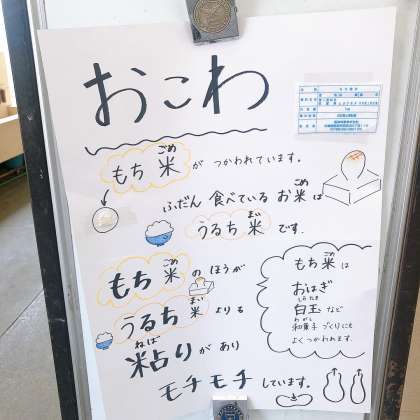 おこわ
もち米が つかわれています。
ふだん 食べている お米は
うるち米です。
もち米のほうが
うるち米よりも
粘りがあり
モチモチしています。
もち米は
おはぎ
白玉など
和菓子づくりにも
よくつかわれます。